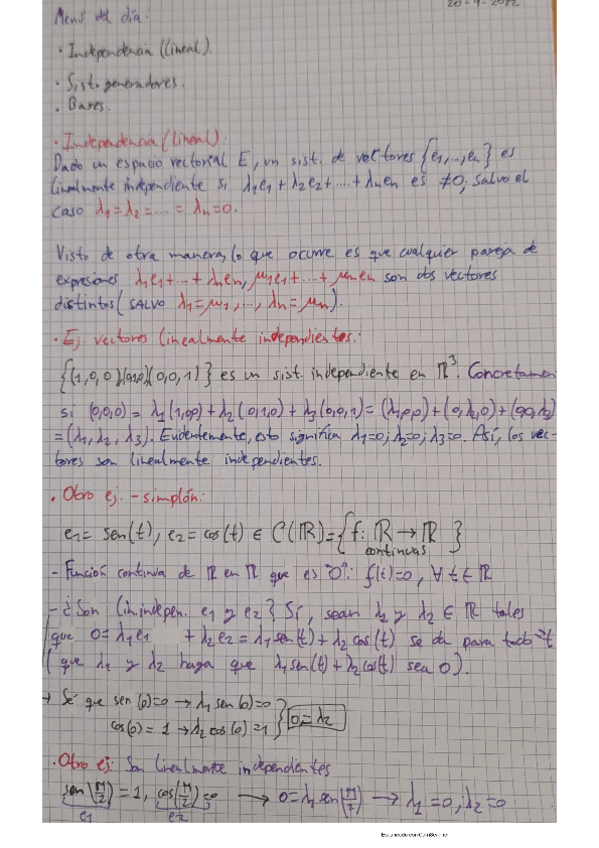 20-9-2022
Menú del día:
· Independencia (lineal).
· Sist. generadores.
· Bases.
· Independencia (lineal).
Dado un espacio vectorial E, un sist. de vectores {e₁,...,eₙ} es
linealmente independiente si λ₁e₁+λ₂e₂+....+λₙeₙ es ≠0, salvo el
caso λ₁=λ₂=....=λₙ=0.
Visto de otra manera, lo que ocurre es que cualquier pareja de
expresiones λ₁e₁+...+λₙeₙ, μ₁e₁+...+μₙeₙ son dos vectores
distintos (SALVO λ₁=μ₁,..., λₙ=μₙ).
· Ej. vectores linealmente independientes.:
{(1,0,0)(0,1,0)(0,0,1)} es un sist. independiente en ℝ³. Concretamen
si (0,0,0) = λ₁(1,0,0)+λ₂(0,1,0)+λ₃(0,0,1)=(λ₁,0,0)+(0,λ₂,0)+(0,0,λ₃)
=(λ₁,λ₂,λ₃). Evidentemente, esto significa λ₁=0; λ₂=0; λ₃=0. Así, los vec-
tores son linealmente independientes.
· Otro ej. - simplón:
e₁= sen(t), e₂=cos(t) ∈ C(ℝ)={f: ℝ→ℝ }
continuas
- Función continua de ℝ en ℝ que es "0": f(t)=0, ∀ t ∈ ℝ
- ¿Son lin. indepen. e₁ y e₂? Sí, sean λ₁ y λ₂ ∈ ℝ tales
(que 0=λ₁e₁ +λ₂e₂=λ₁sen(t)+λ₂cos(t) se da para todo t
(que λ₁ y λ₂ haga que λ₁sen(t)+λ₂cos(t) sea 0).
→ Sé que sen(0)=0 → λ₁sen(0)=0
cos(0)=1 → λ₂cos(0)=1 } 0=λ₂
· Otro ej: Son linealmente independientes
sen(π/2)=1, cos(π/2)=0 → 0=λ₁sen(π/2) → λ₁=0; λ₂=0
e₁ e₂
Escaneado con CamScanner